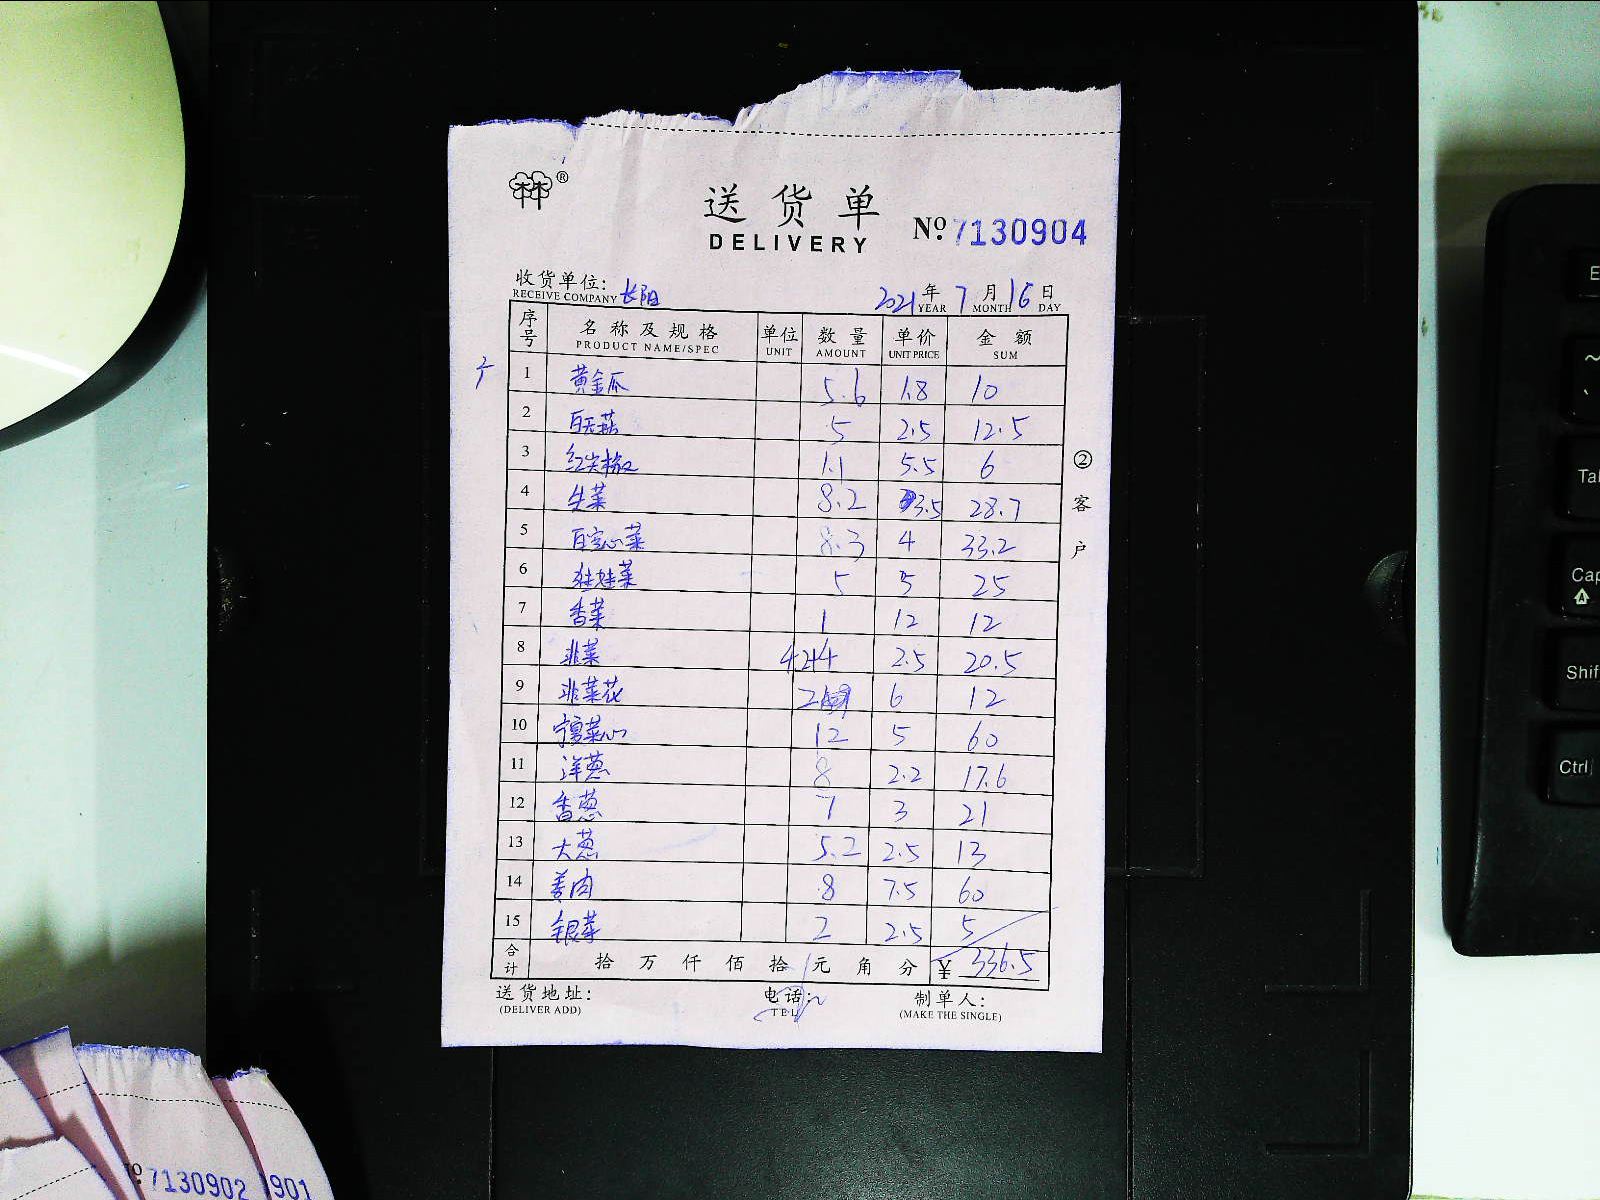 ®
送货单
DELIVERY
No. 7130904
收货单位: 长阳
RECEIVE COMPANY
2021年 7月 16日
YEAR MONTH DAY
序号 名称及规格 单位 数量 单价 金额
PRODUCT NAME/SPEC UNIT AMOUNT UNIT PRICE SUM
1 黄金瓜 5.6 1.8 10
2 5 2.5 12.5
3 红尖椒 1.1 5.5 6
4 生菜 8.2 3.5 28.7
5 白空心菜 8.3 4 33.2
6 娃娃菜 5 5 25
7 香菜 1 12 12
8 韭菜 4.2+4 2.5 20.5
9 韭菜花 2 6 12
10 宁夏菜心 12 5 60
11 洋葱 8 2.2 17.6
12 香葱 7 3 21
13 大葱 5.2 2.5 13
14 姜肉 8 7.5 60
15 银菜 2 2.5 5
合计 拾万仟佰拾元角分 ¥ 336.5
送货地址: 电话: 制单人:
(DELIVER ADD) TEL (MAKE THE SINGLE)
②客户
No 7130902
901
E
~
Tab
Cap
Shif
Ctrl